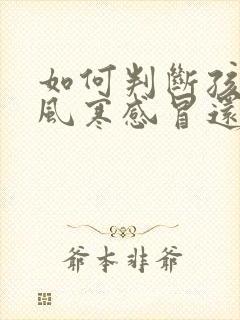 如何判斷孩
風寒感冒還
爺本非爺